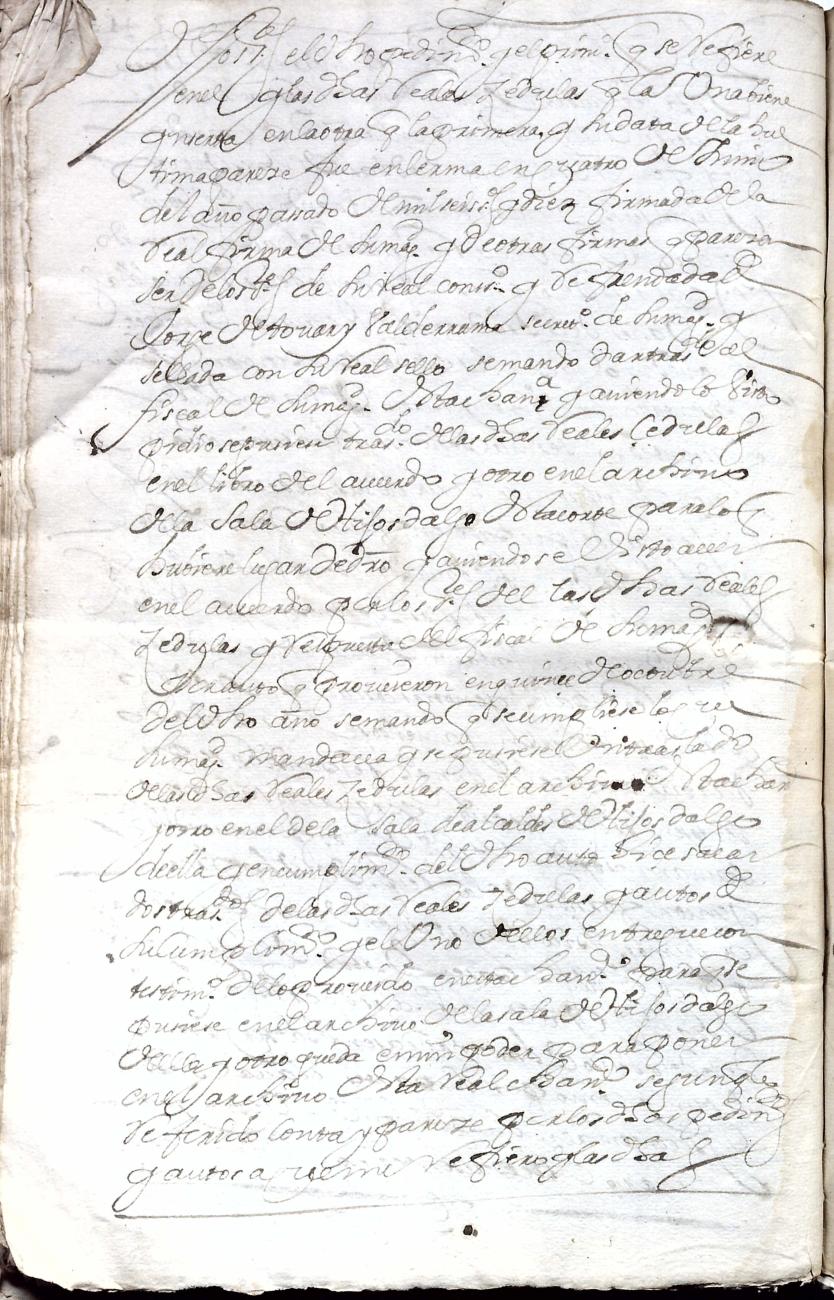 el dho pedim.to y el prim.o q se rrefiere
en el y las dhas rreales zedulas q la Una biene
ynserta en la otra q la primera y su data de la hul
tima pareze fue en lerma en quatro de Junio
del año passado de mil seis.os y diez firmada de la
rreal firma de su mag.d y de otras firmas q parezen
ser de los s.res de su rreal cons.o y rrefrendada de
Jorje de tovar y balderrama secret.o de su mag.d y
sellada con su rreal sello se mando dar tras.do al
fiscal de su mag.d desta chan.a y aviendolo bisto
pidio se pusiese tras.do de las dhas rreales cedulas
en el libro del acuerdo y otro en el archivo
de la sala de Hijos dalgo desta corte para lo q
hubiere lugar de drho y aviendose bisto
en el acuerdo por los s.res del las dhas rreales
zedulas y rrespuesta del fiscal de su mag.d
Por auto q proveyeron en quince de octubre
del dho año se mando q se cumpliese lo que
su mag.d mandava y se pusiese Un traslado
de las dhas rreales zedulas en el archivo desta chan
y otro en el de la sala de alcaldes de Hijos dalgo
de ella y en cumplim.to del dho auto hice sacar
dos tras.dos de las dhas rreales zedulas y autos de
su cumplim.to y el Uno dellos entregue con
testim.o de lo proveido en esta chan.a para q se
pusiese en el archivo de la sala de Hijos dalgo
della y otro queda en mi poder para poner
en el archivo desta rreal chan.a segun q lo
rreferido consta y pareze por los dhos pedim.tos
y autos a que me rrefiero y las dhas